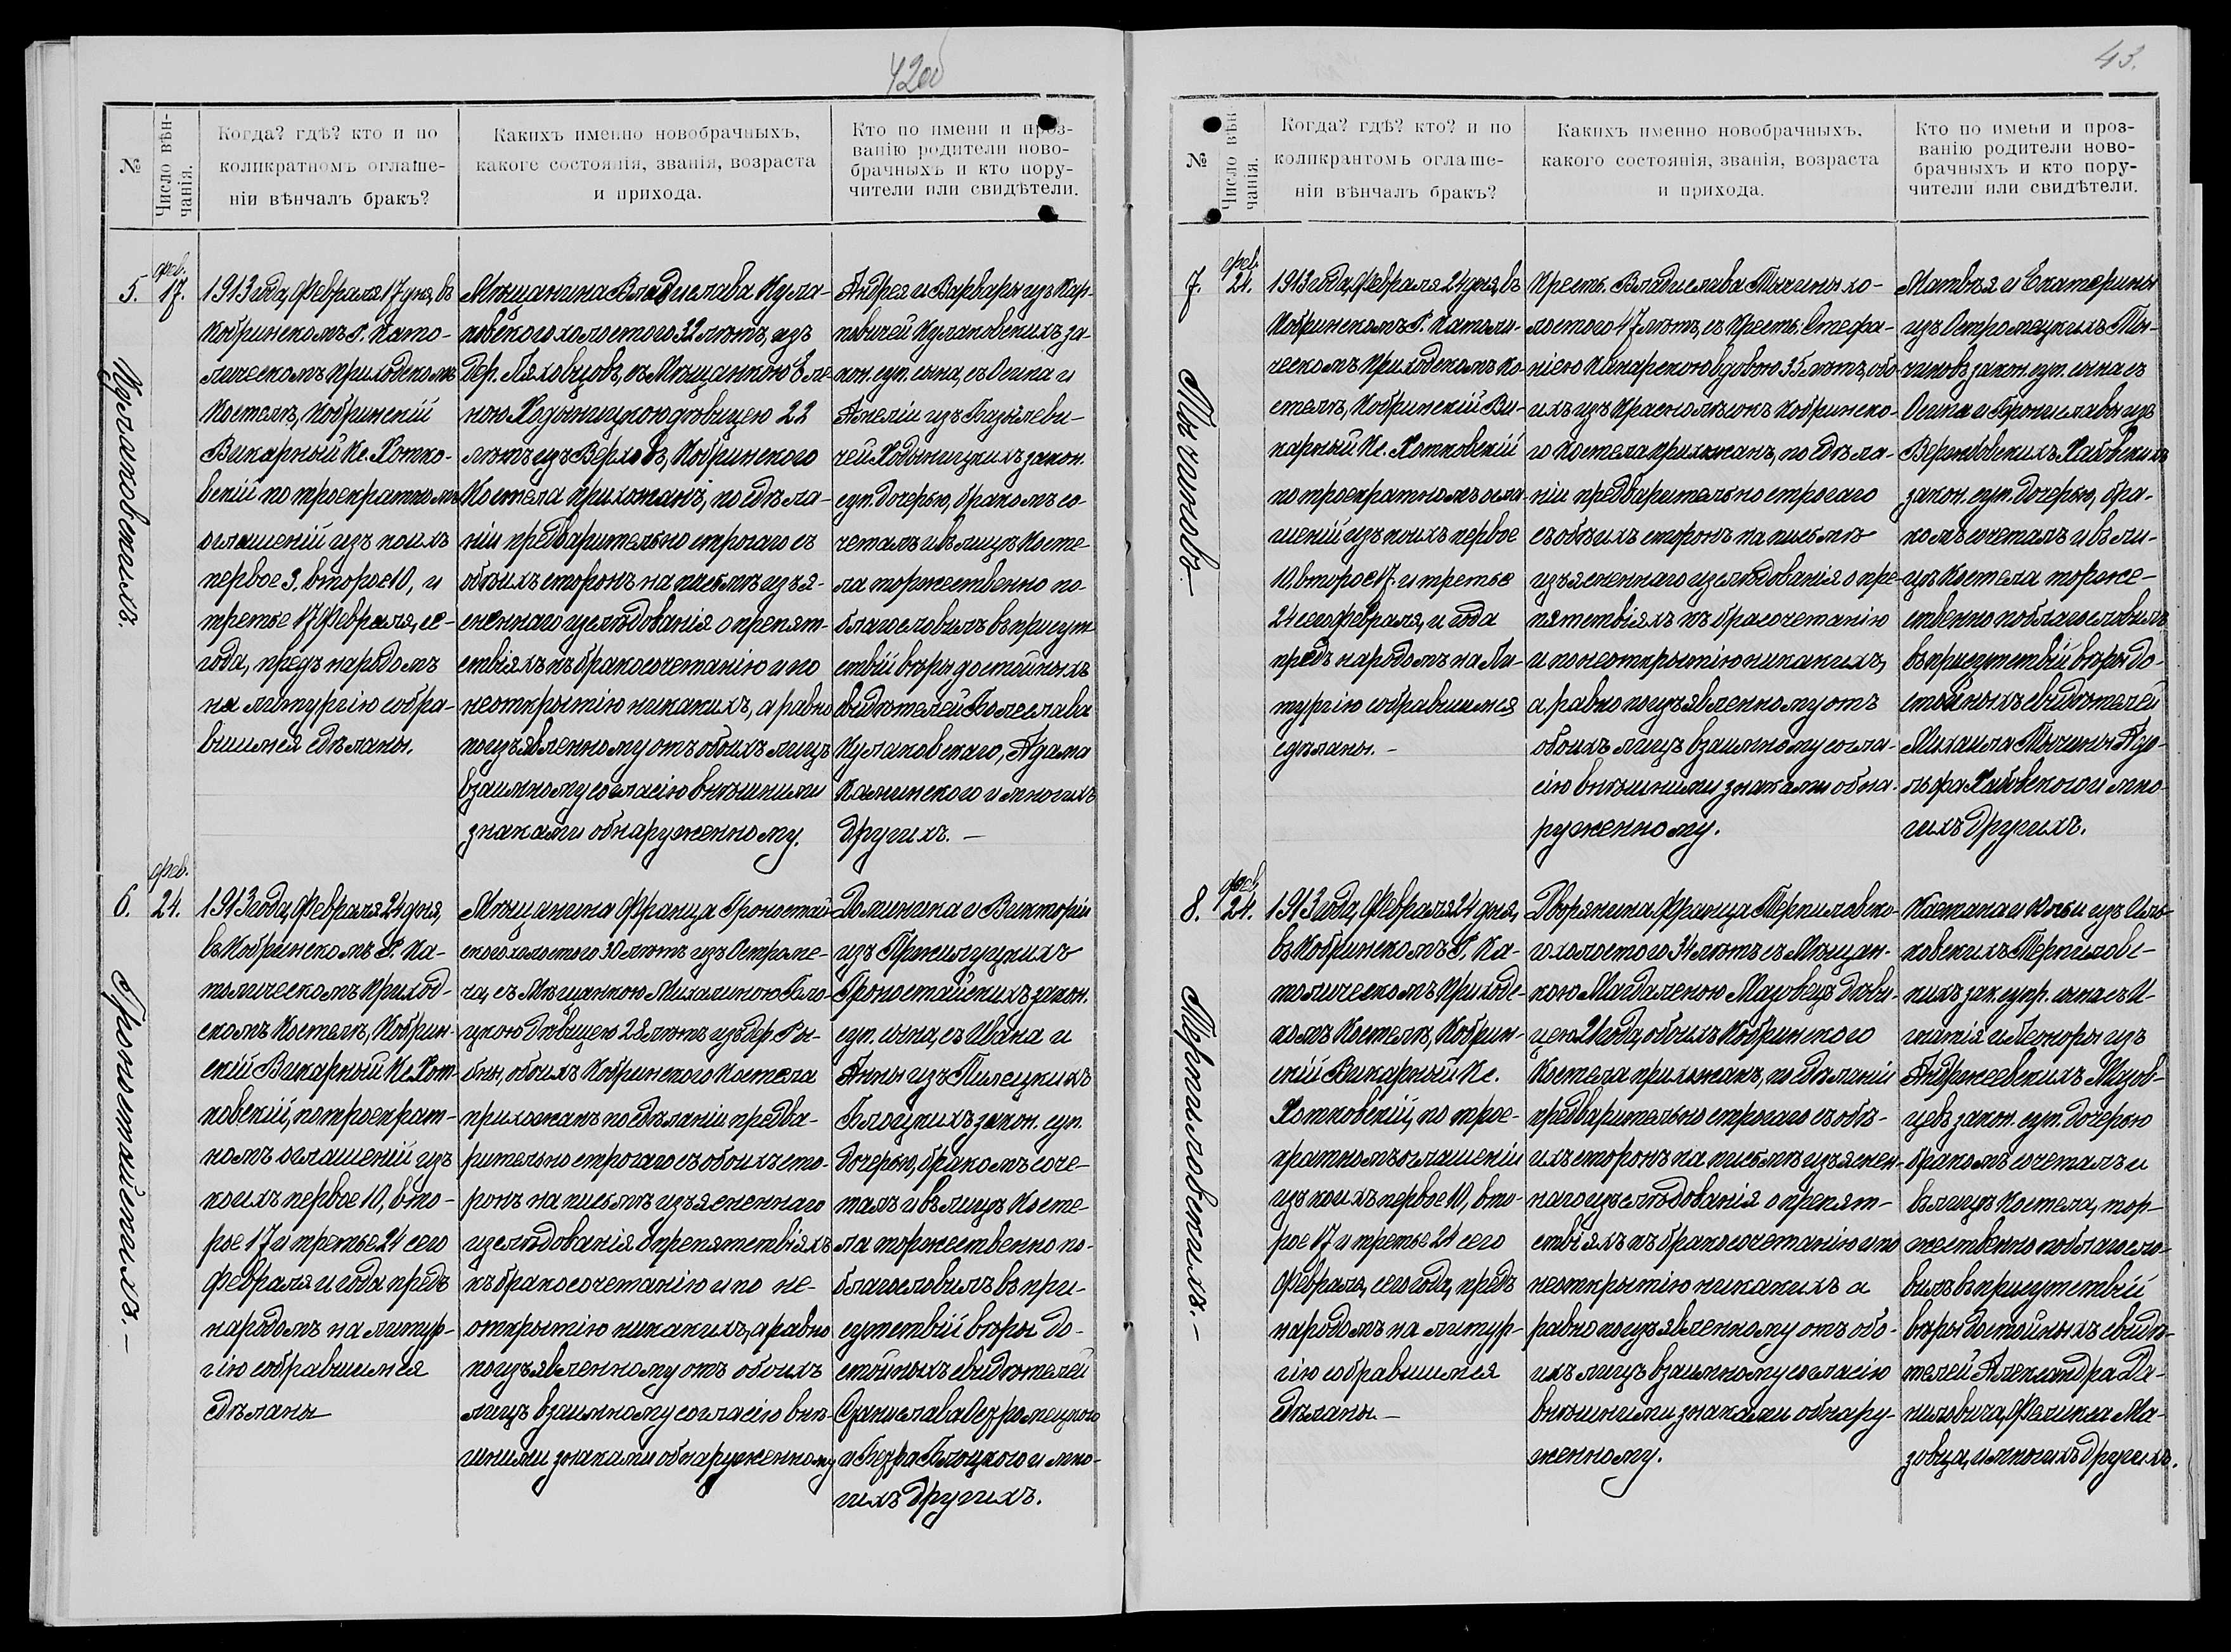 42об
№
Число вѣн-
чанія.
Когда? гдѣ? кто и по
коликратномъ оглаше-
ніи вѣнчалъ бракъ?
Какихъ именно новобрачныхъ,
какоге состоянія, званія, возраста
и прихода.
Кто по имени и проз-
ванію родители ново-
брачныхъ и кто пору-
чители или свидѣтели.
5.
фев.
17.
Кулаковскихъ.
1913 года, Февраля 17 дня, въ
Кобринскомъ Р. Като-
лическомъ приходскомъ
Костелѣ, Кобринскій
Викарный Кс. Хотко-
вскій по троекратномъ
оглашеній изъ коихъ
первое 3, второе 10, и
третье 17 Февраля, се-
года, предъ народомъ
на литургію собра-
вшимся сдѣланы.
Мѣщанина Владислава Кула-
ковского холостого 32 лѣтъ, изъ
Дер. Ляховцовъ, съ Мѣщанкою Еле-
ною Ходыницкою дѣвицею 22
лѣтъ изъ Верховъ, Кобринского
Костела прихожанъ, по сдѣла-
ніи предварительно строгаго съ
обоихъ сторонъ на письмѣ изъя-
сненнаго изслѣдованія о препят-
ствіяхъ къ бракосочетанію и по
неоткрытію никакихъ, а равно
поизъявленному отъ обоихъ лицъ
взаимному согласію внѣшними
знаками обнаруженному.
Андрея и Варвары изъ Кар-
повичей Кулаковскихъ за-
кон. суп. сына, съ Осипа и
Амеліи изъ Базылеви-
чей Ходыницкихъ закон.
суп. дочерью, бракомъ со-
четалъ и въ лицѣ Косте-
ла торжественно по-
благословилъ въ присут-
ствіи вѣры достойныхъ
свидѣтелей Болеслава
Кулаковскаго, Адама
Каминского и многихъ
другихъ. —
6.
фев.
24.
Гроностайскихъ. —
1913 года, Февраля 24 дня,
въ Кобринскомъ Р. Ка-
толическомъ Приход-
скомъ Костелѣ, Кобрин-
скій Викарный Кс. Хот-
ковскій, по троекрат-
номъ оглашеній изъ
коихъ первое 10, вто-
рое 17 и третье 24 сего
Февраля и года предъ
народомъ на литур-
гію собравшимся
сдѣланы
Мѣщанина Франца Гроностай-
ского холостого 30 лѣтъ изъ Остроме-
ча, съ Мѣщанкою Михалиною Бло-
цкою дѣвицею 28 лѣтъ изъ Дер. Ры-
бны, обоихъ Кобринского Костела
прихожанъ по сдѣланіи предва-
рительно строгаго съ обоихъ сто-
ронъ на письмѣ изъясненнаго
изслѣдованія о препятствіяхъ
къ бракосочетанію и по не-
открытію никакихъ, а равно
поизъявленному отъ обоихъ
лицъ взаимному согласію внѣ-
шними знаками обнаруженному
Доминика и Викторіи
изъ Пржилуцкихъ
Гроностайскихъ закон.
суп. сына, съ Ивана и
Анны изъ Пилецкихъ
Блоцкихъ закон. суп.
дочерью, бракомъ соче-
талъ и въ лицѣ Косте-
ла торжественно по-
благословилъ въ при-
сутствіи вѣры до-
стойныхъ свидѣтелей
Станислава Остромецкого
и Петра Блоцкого и мно-
гихъ другихъ.
43.
№
Число вѣн
чанія.
Когда? гдѣ? кто? и по
коликрантомъ оглаше-
ніи вѣнчалъ бракъ?
Какихъ именно новобрачныхъ,
какого состоянія, званія, возраста
и прихода.
Кто по имени и проз-
ванію родители ново-
брачныхъ и кто пору-
чители или свидѣтели.
7.
фев.
24.
Тычиновъ.
1913 года, Февраля 24 дня, въ
Кобринскомъ Р. Католи-
ческомъ Приходскомъ Ко-
стелѣ, Кобринскій Ви-
карный Кс. Хотковскій
по троекратномъ огла-
шеній изъ коихъ первое
10 второе 17 и третье
24 сего Февраля, и года
предъ народомъ на Ли-
тургію собравшимся
сдѣланы. —
Крест. Владислава Тычины хо-
лостого 47 лѣтъ, съ Крест. Стефа-
ніею Качарскою вдовою 35 лѣтъ, обо-
ихъ изъ Краснолѣнокъ Кобринско-
го Костела прихожанъ, по сдѣла-
ніи предварительно строгаго
съ обоихъ сторонъ на письмѣ
изъясненнаго изслѣдованія о пре-
пятствіяхъ къ бракосочетанію
и по неоткрытію никакихъ,
а равно поизъявленному отъ
обоихъ лицъ взаимному согла-
сію внѣшними знаками обна-
руженному.
Матвѣя и Екатерины
изъ Остромецкихъ Ты-
чиновъ закон. суп. сына съ
Осипа и Брониславы изъ
закон. суп. дочерью, бра-
комъ сочеталъ и въ ли-
цѣ Костела торже-
ственно поблагословилъ
въ присутствіи вѣры до-
стойныхъ свидѣтелей
Михаила Тычины Адо-
льфа Хабовского и мно-
гихъ другихъ.
8.
фев.
24.
Терпиловскихъ. —
1913 года, Февраля 24 дня,
въ Кобринскомъ Р. Ка-
толическомъ Приходс-
комъ Костелѣ, Кобрин-
скій Викарный Кс.
Хотковскій, по трое-
кратномъ оглашеніи
изъ коихъ первое 10, вто-
рое 17 и третье 24 сего
Февраля, сего года, предъ
народомъ на литур-
гію собравшимся
сдѣланы. —
Дворянина Франца Терпиловско-
го холостого 34 лѣтъ съ Мѣщан-
кою Магдаленою Мазовецъ дѣви-
цею 21 года, обоихъ Кобринского
Костела прихожанъ, по сдѣланіи
предварительно строгаго съ обѣ-
ихъ сторонъ на письмѣ изъяснен-
наго изслѣдованія о препят-
ствіяхъ къ бракосочетанію и по
неоткрытію никакихъ а
равно поизъявленному отъ обо-
ихъ лицъ взаимному согласію
внѣшними знаками обнару-
женному.
ковскихъ Терпиловс-
кихъ зак. супр. сына съ И-
гнатія и Леоноры изъ
Андржеевскихъ Мазов-
цевъ закон. суп. дочерью
бракомъ сочеталъ и
въ лицѣ Костела, тор-
жественно поблагосло-
вилъ въ присутствіи
вѣры достойныхъ свидѣ-
телей Александра Да-
ниловича, Феликса Ма-
зовца, и многихъ другихъ.